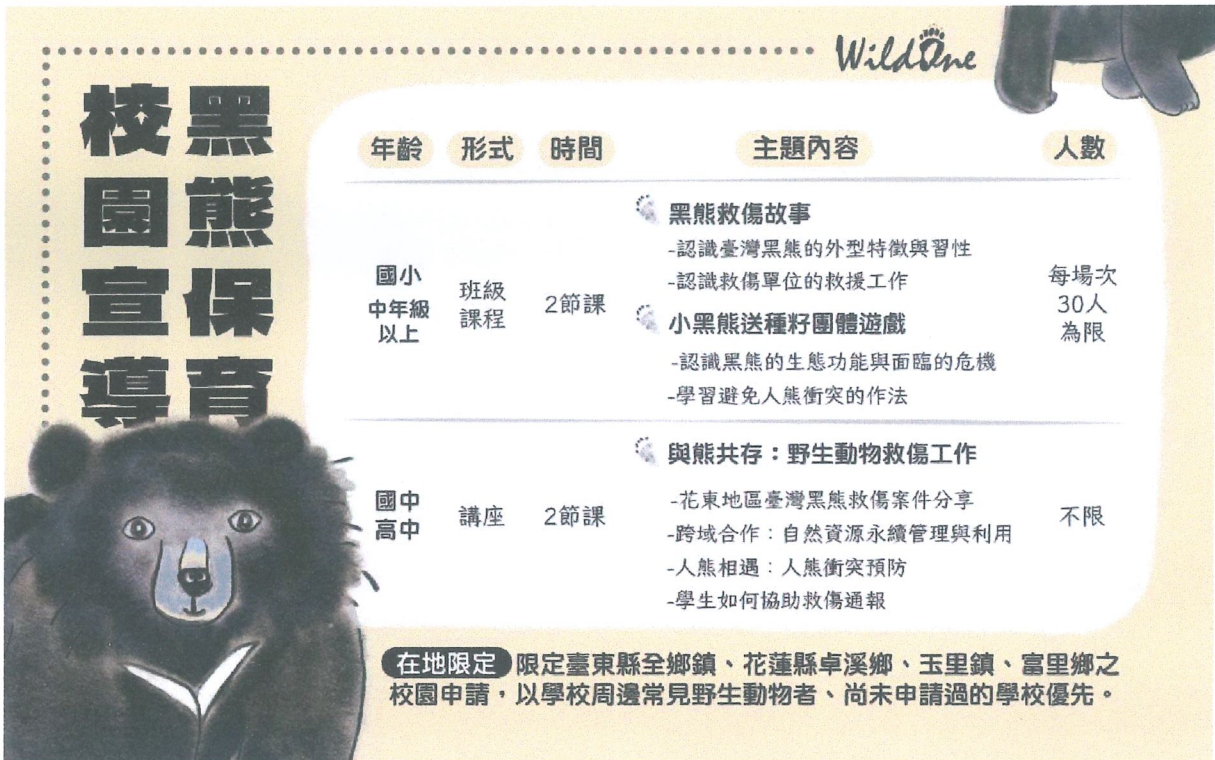 WildOne
黑熊保育
校園宣導
年齡 形式 時間 主題內容 人數
國小
中年級
以上
班級
課程
2節課
黑熊救傷故事
-認識臺灣黑熊的外型特徵與習性
-認識救傷單位的救援工作
小黑熊送種籽團體遊戲
-認識黑熊的生態功能與面臨的危機
-學習避免人熊衝突的作法
每場次
30人
為限
國中
高中
講座
2節課
與熊共存：野生動物救傷工作
-花東地區臺灣黑熊救傷案件分享
-跨域合作：自然資源永續管理與利用
-人熊相遇：人熊衝突預防
-學生如何協助救傷通報
不限
在地限定 限定臺東縣全鄉鎮、花蓮縣卓溪鄉、玉里鎮、富里鄉之
校園申請，以學校周邊常見野生動物者、尚未申請過的學校優先。